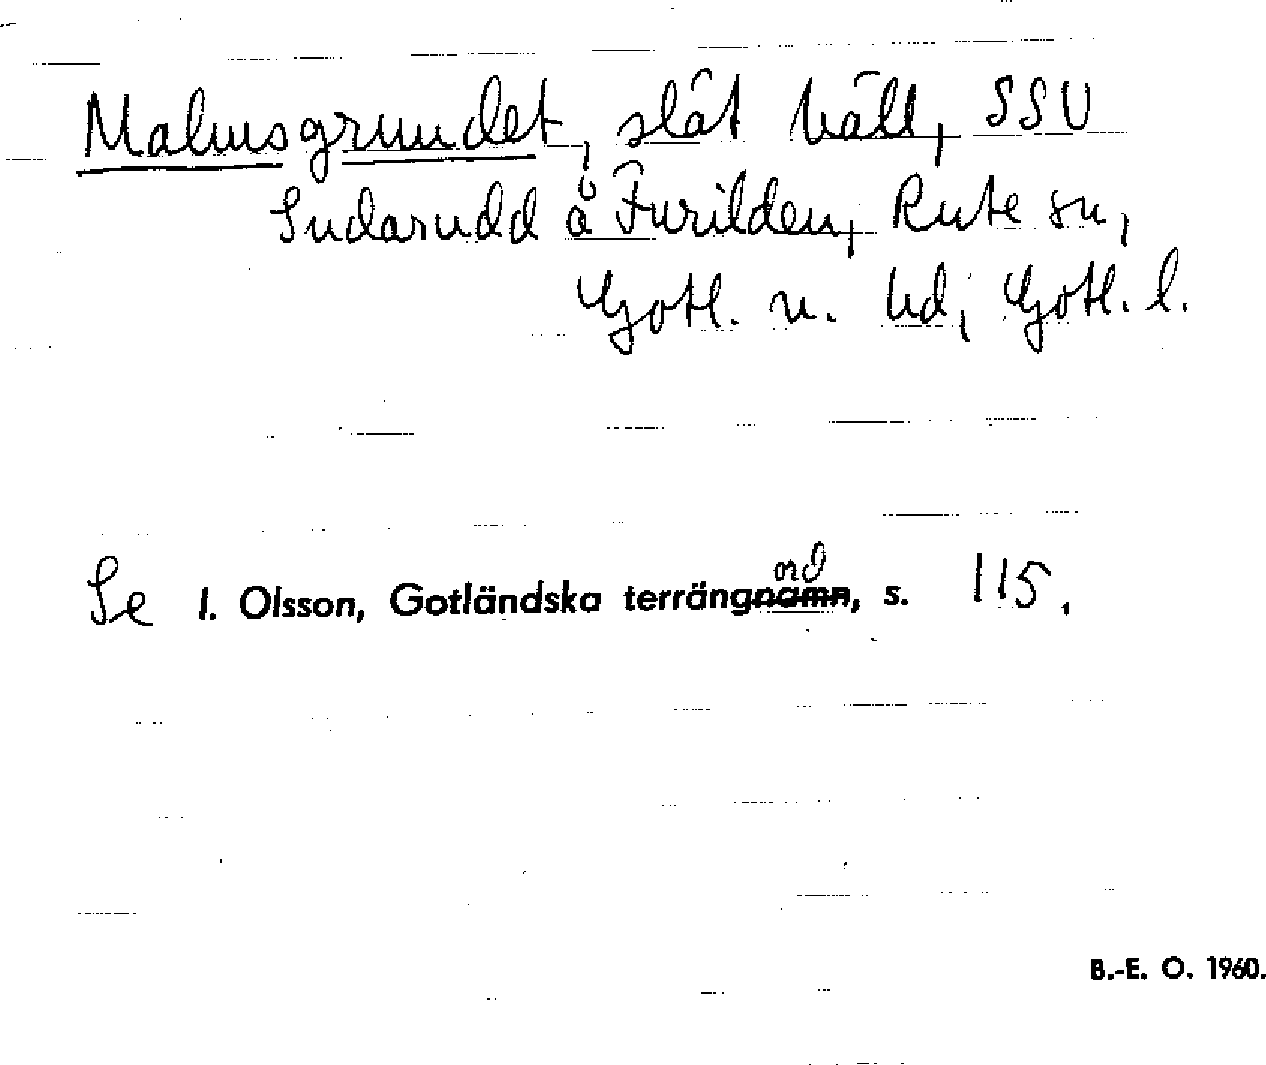 Malmsgrundet, slät häll, SSV
Sudarudd å Furilden, Rute sn,
Gotl. n. hd, Gotl. l.
Se I. Olsson, Gotländska terrängnamn, s. 115.
ord
B.-E. O. 1960.